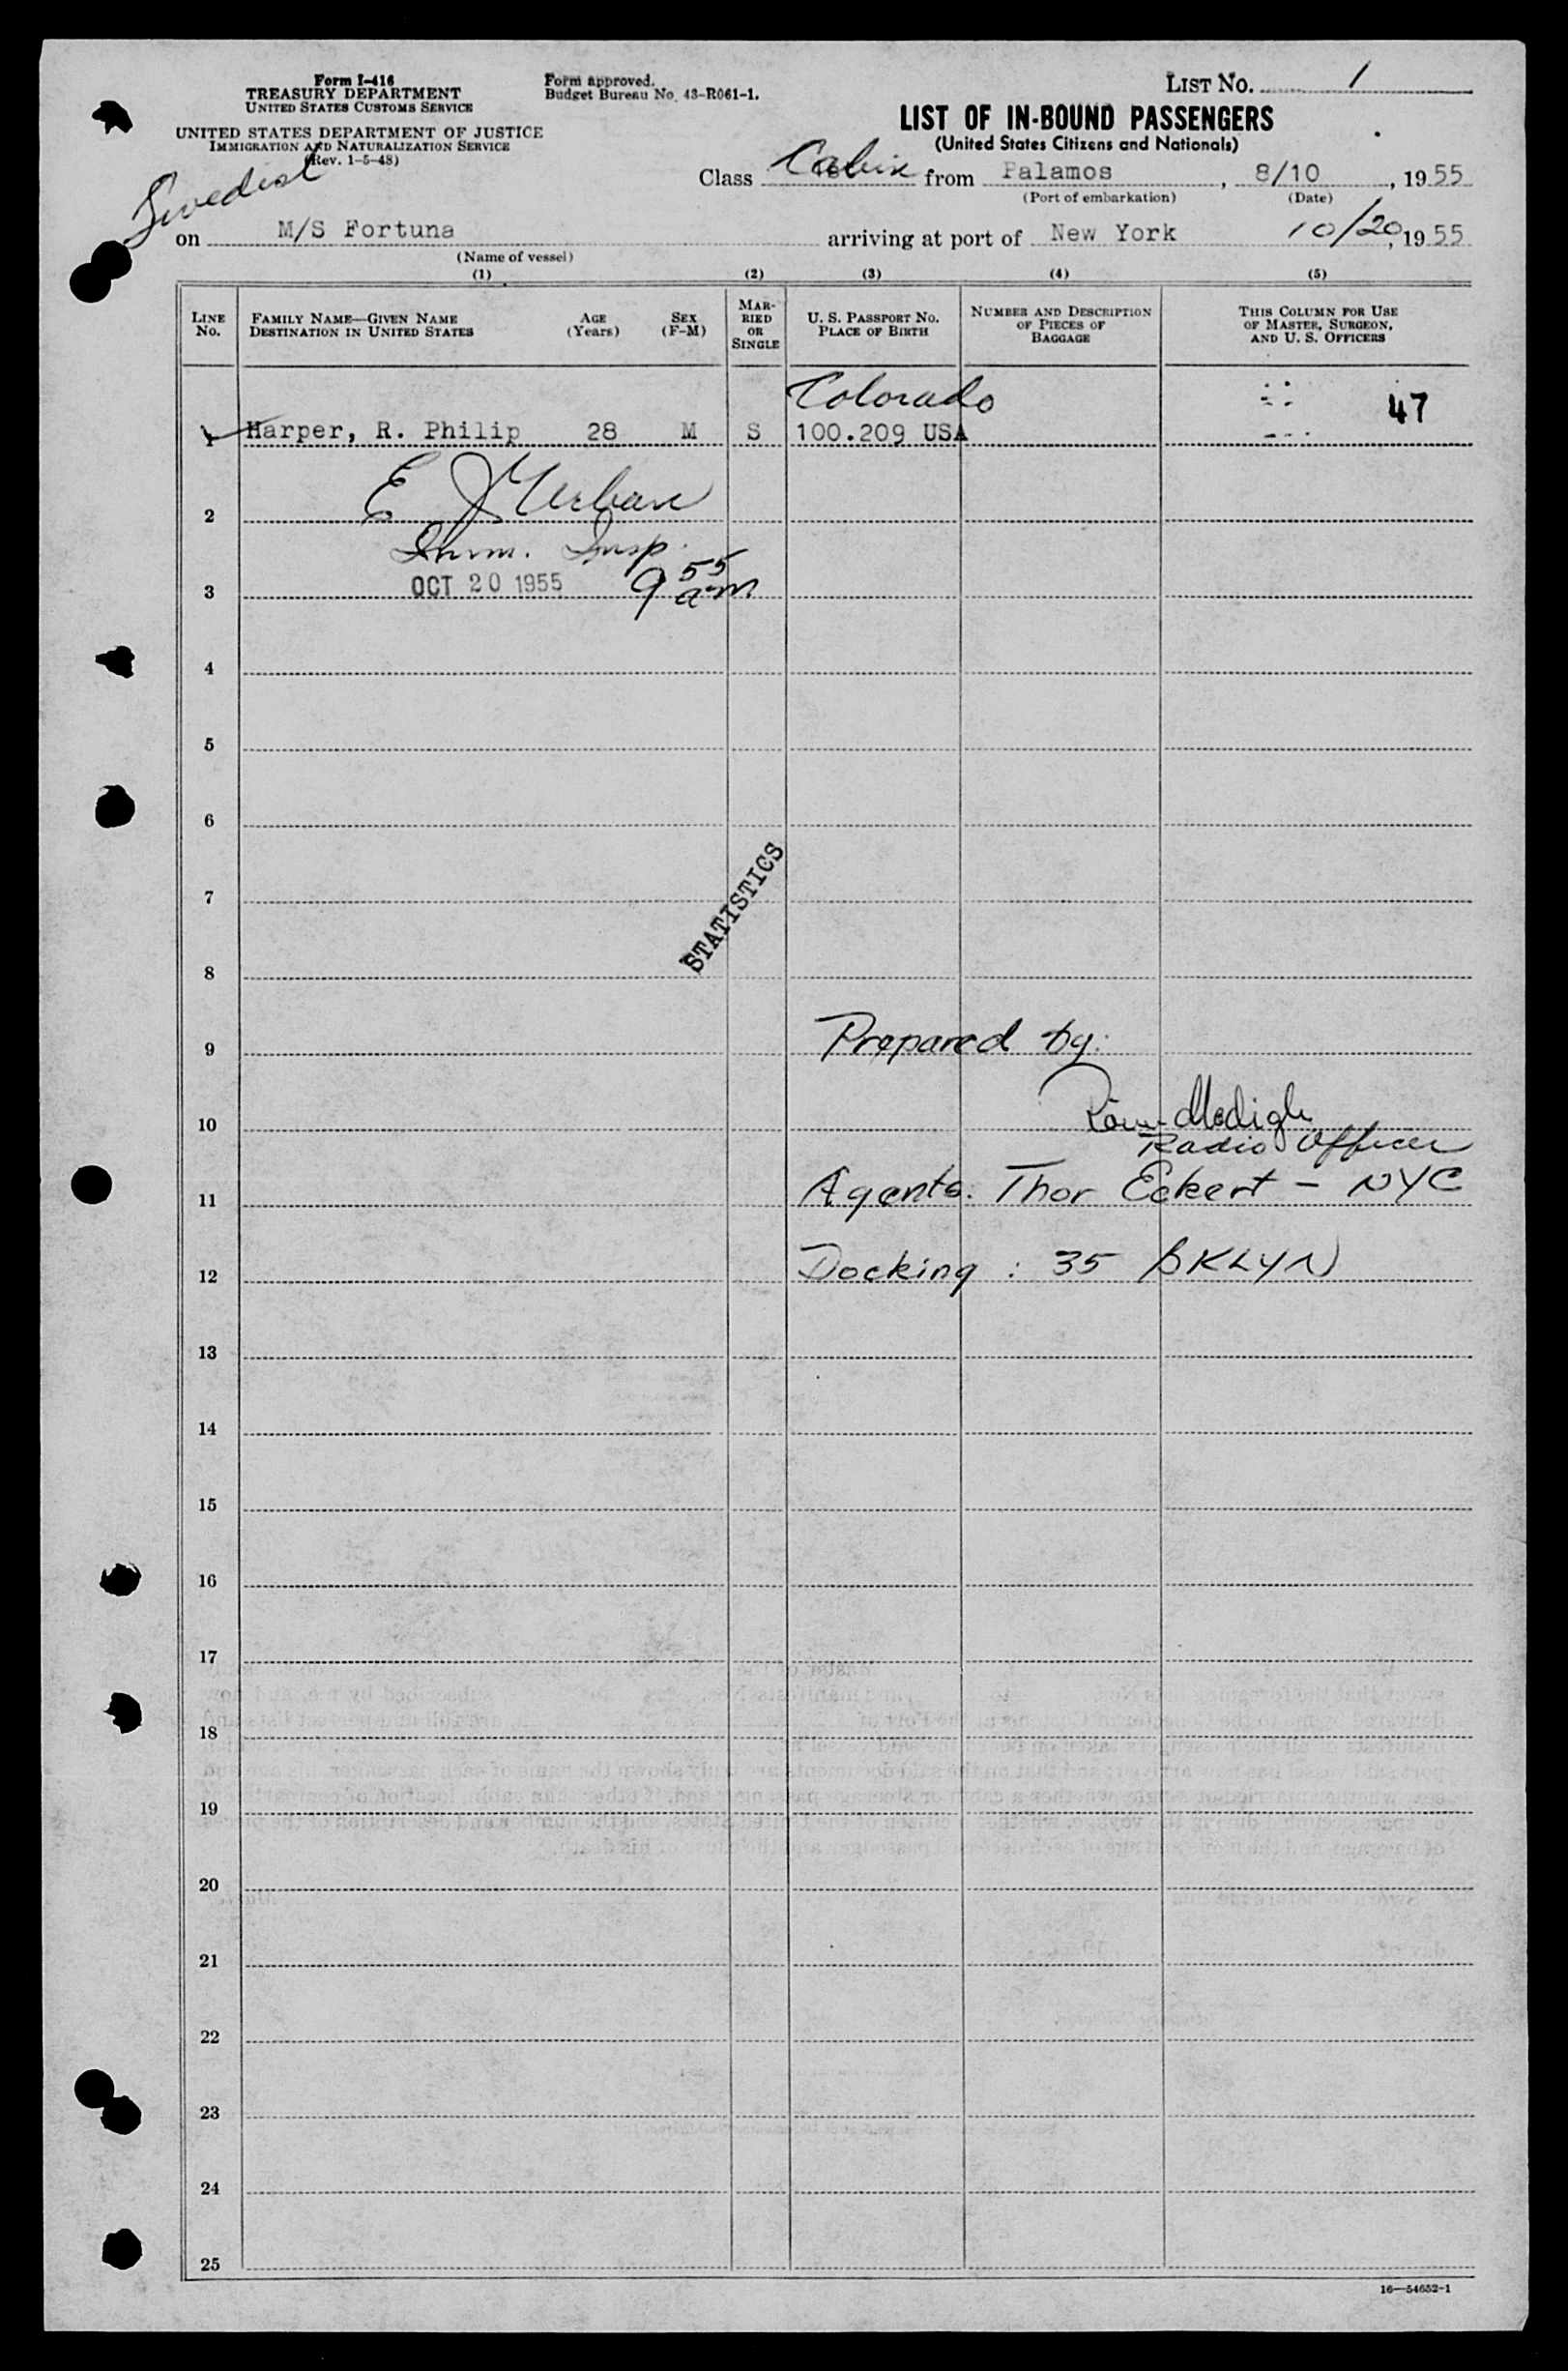 Form I-416
TREASURY DEPARTMENT
UNITED STATES CUSTOMS SERVICE
UNITED STATES DEPARTMENT OF JUSTICE
IMMIGRATION AND NATURALIZATION SERVICE
(Rev. 1-5-48)
Form approved.
Budget Bureau No. 43-R061-1.
LIST No. 1
LIST OF IN-BOUND PASSENGERS
(United States Citizens and Nationals)
Class Cabin from Palamos, 8/10, 1955
(Port of embarkation) (Date)
Swedish
on M/S Fortuna arriving at port of New York 10/20, 1955
(Name of vessel)
(1) (2) (3) (4) (5)
LINE No.
FAMILY NAME—GIVEN NAME
DESTINATION IN UNITED STATES
AGE (Years)
SEX (F-M)
MAR-RIED OR SINGLE
U. S. PASSPORT No.
PLACE OF BIRTH
NUMBER AND DESCRIPTION OF PIECES OF BAGGAGE
THIS COLUMN FOR USE OF MASTER, SURGEON, AND U. S. OFFICERS
Colorado
47
1 Harper, R. Philip 28 M S 100.209 USA
E J Urban
2
Imm. Insp.
3 OCT 20 1955 9 55 am
4
5
6
7
STATISTICS
8
9 Prepared by:
10
Radio Officer
11 Agents: Thor Eckert - NYC
12 Docking : 35 BKLYN
13
14
15
16
17
18
19
20
21
22
23
24
25
16—54652-1